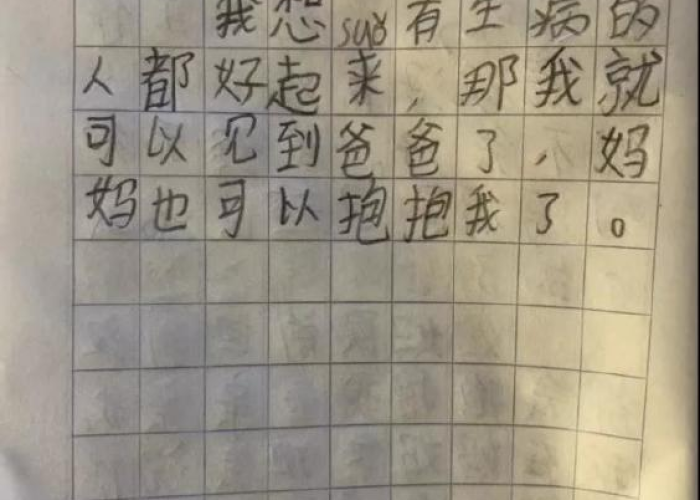 我想suǒ有生病的
人都好起来，那我就
可以见到爸爸了，妈
妈也可以抱抱我了。